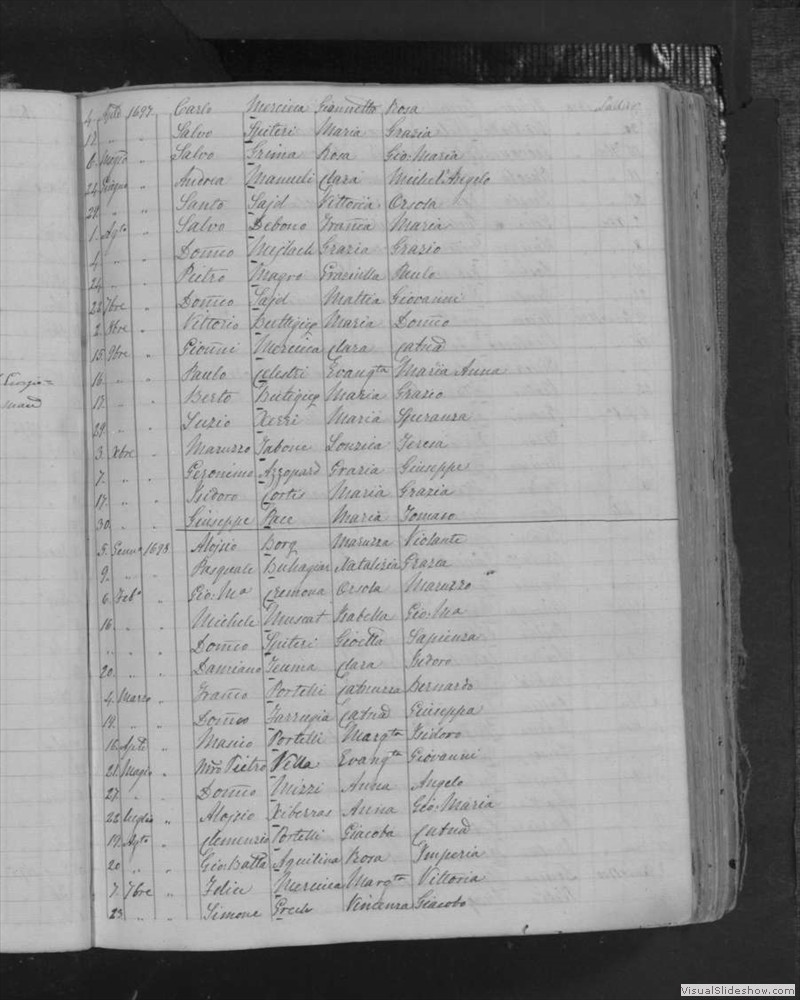 4. 1697 Carlo Mercieca Giannetta Rosa
12 " " Salvo Spiteri Maria Grazia
6. " Salvo Grima Rosa Gio: Maria
24. Giugno " Andrea Manueli Clara Michel'Angelo
29 " " Santo Sajd Vittoria Orsola
1. Agto " Salvo Debono Maria
4 " " Domco Mejlach Grazia Grazio
24. " " Pietro Magro Graziella Paulo
22. 7bre " Domco Sajd Mattia Giovanni
2. 8bre " Vittorio Buttigieg Maria Domco
15. 9bre " Gioanni Mercieca Clara Catna
16. " " Paulo Celestri Evangta Maria Anna
17. " " Berto Butigieg Maria Grazio
29. " " Luzio Xerri Maria Speranza
3. Xbre " Maruzzo Tabone Teresa
7. " " Geronimo Azzopard Grazia Giuseppe
17. " " Isidoro Cortis Maria Grazia
30. " " Giuseppe Pace Maria Tomaso
5. 1698 Alojsio Borg Maruzza Violante
9. " " Pasquale Buhagiar Natalizia Grazia
6. Febo " Gio: Ma Cremona Orsola Maruzzo
16. " " Michele Muscat Isabella Gio: Ma
" " " Domco Spiteri Sapienza
20. " " Damiano Teuma Clara Isidoro
4. Marzo " Franco Portelli Catnuzza Bernardo
14. " " Domco Farrugia Catna Giuseppa
16. Aple " Portelli Margta Isidoro
21. Magio " Mro Pietro Vella Evangta Giovanni
27. " " Domco Mizzi Anna Angelo
22. Luglio " Alojsio Xiberras Anna Gio: Maria
14. Agto " Clemenzio Portelli Giacoba Catna
20 " " Gio: Batta Aquilina Rosa Imperia
7. 7bre " Felice Mercieca Margta Vittoria
23. " " Simone Grech Vincenza Giacobo
VisualSlideshow.com